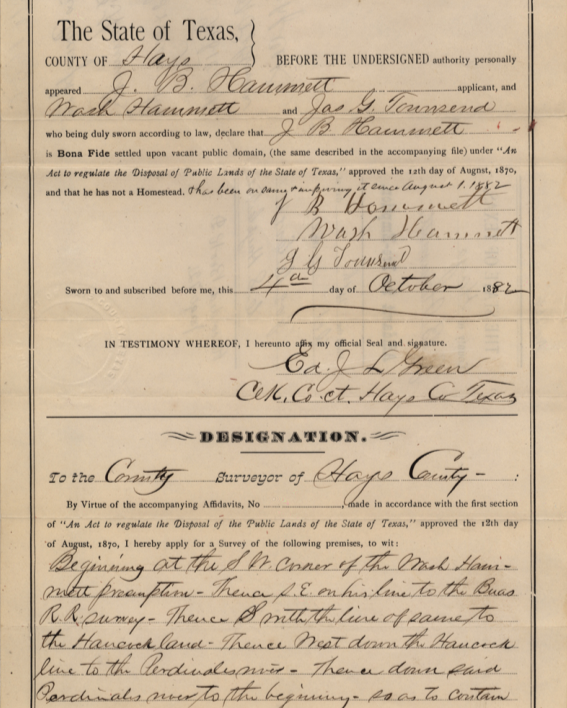 The State of Texas, }
COUNTY OF Hays BEFORE THE UNDERSIGNED authority personally
appeared J. B. Hammett applicant, and
Wash Hammett and Jas G. Townsend
who being duly sworn according to law, declare that J B Hammett
is Bona Fide settled upon vacant public domain, (the same described in the accompanying file) under "An
Act to regulate the Disposal of Public Lands of the State of Texas," approved the 12th day of August, 1870,
and that he has not a Homestead. & has been on same & improving it since August 1. 1882
J B Hammett
Wash Hammett
J G Townsend
Sworn to and subscribed before me, this 4th day of October 1882
IN TESTIMONY WHEREOF, I hereunto affix my official Seal and signature.
Ed. J. L. Green
Clk, Co. ct. Hays Co Texas
DESIGNATION.
To the County Surveyor of Hays County - :
By Virtue of the accompanying Affidavits, No , made in accordance with the first section
of "An Act to regulate the Disposal of the Public Lands of the State of Texas," approved the 12th day
of August, 1870, I hereby apply for a Survey of the following premises, to wit:
Beginning at the S W. corner of the Wash Ham-
mett preemption - Thence S. E. on his line to the
R. R. survey - Thence S with the line of same to
the Hancock land - Thence West down the Hancock
line to the Perdinales river - Thence down said
Perdinales river to the beginning - so as to contain